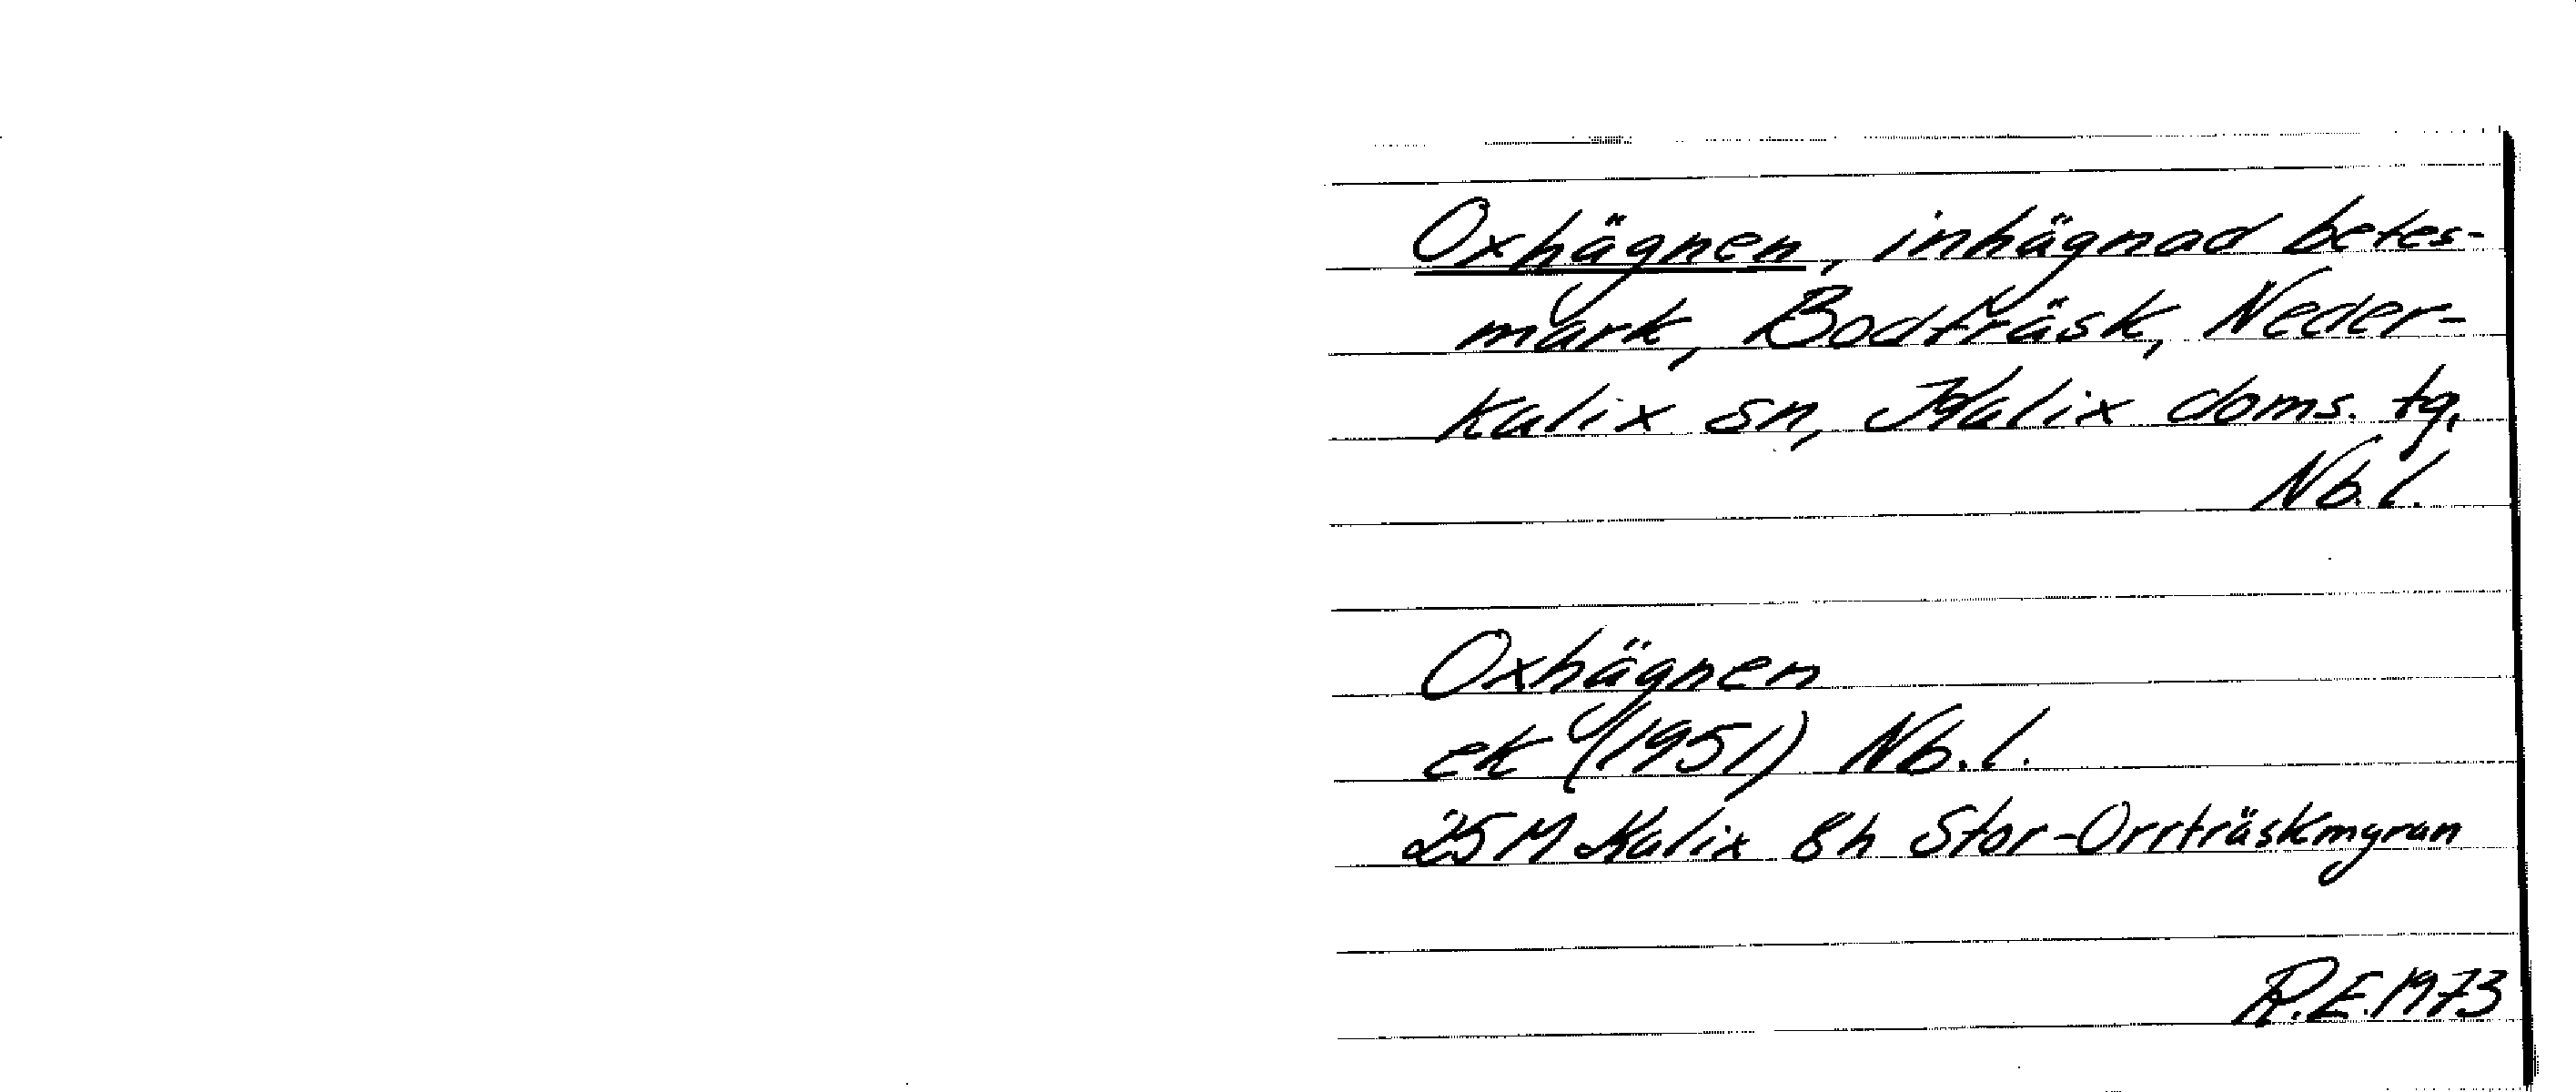 Oxhägnen, inhägnad betes-
mark, Bodträsk, Neder-
kalix sn, Kalix doms. tg.
Nb.l.
Oxhägnen
ek (1951) Nb.l.
25 M Kalix 8h Stor-Orrträskmyran
R.E. 1973